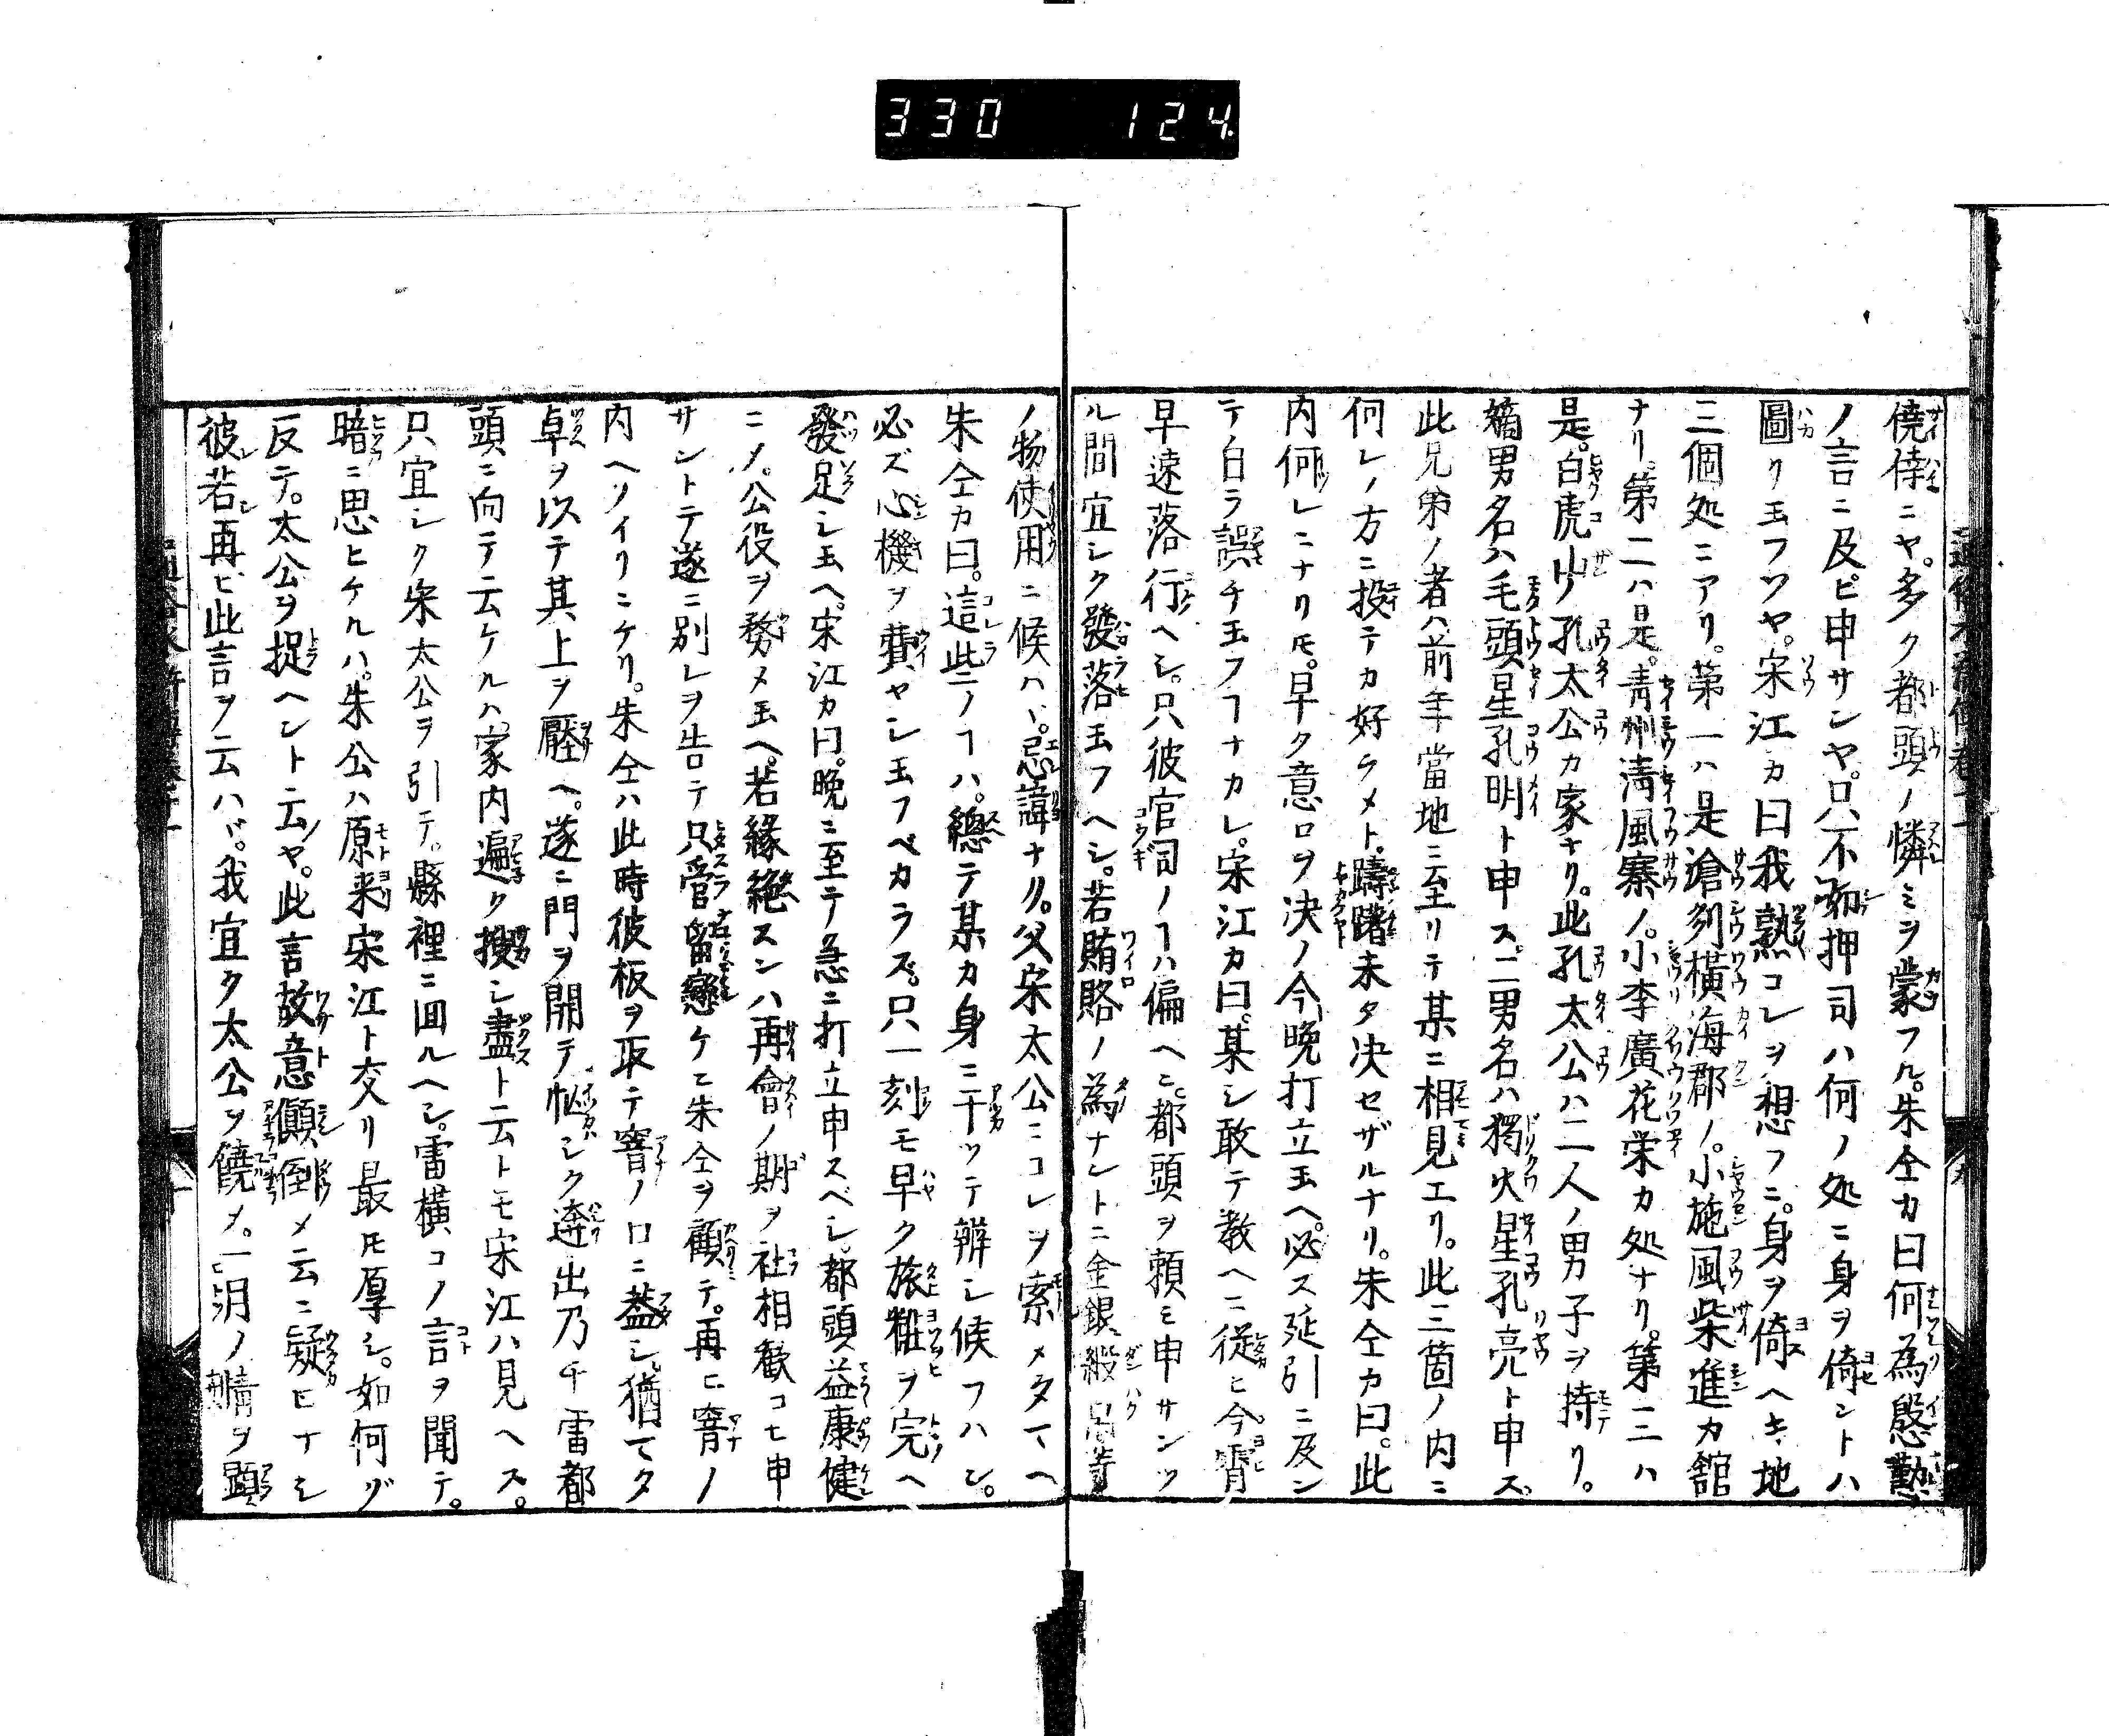 330 124
僥倖ニヤ。多ク都頭ノ憐ミヲ蒙フル。朱仝カ曰何為慇懃
ノ言ニ及ビ申サンヤ。只不知押司ハ何ノ処ニ身ヲ倚ントハ
圖リ玉フツヤ。宋江カ曰我熟コレヲ想フニ。身ヲ倚ヘキ地
三個処ニアリ。第一ハ是滄刕橫海郡ノ。小施風柴進カ舘
ナリ。第二ハ是。青州清風寨ノ。小李廣花栄カ処ナリ。第三ハ
是。白虎山孔太公カ家ナリ。此孔太公ハ二人ノ男子ヲ持リ。
嫡男名ハ毛頭星孔明ト申ス。二男名ハ獨火星孔亮ト申ス。
此兄弟ノ者ハ前年當地ニ至リテ某ニ相見エリ。此三箇ノ内ニ
何レノ方ニ投テカ好ラメト。躊躇未タ决セザルナリ。朱仝カ曰。此
内何レニナリ𪜈。早ク意ロヲ决ノ今晩打立玉ヘ。必ス延引ニ及ン
テ自ラ誤チ玉フヿナカレ。宋江カ曰。某シ敢テ教ヘニ従ヒ今宵
早速落行ヘシ。只彼官司ノヿハ偏ヘニ都頭ヲ頼ミ申サンツ
ル間宜シク發落玉フヘシ。若賄賂ノ為ナントニ金銀緞帛等
ノ物使用ニ候ハヽ。忌諱ナク。父宋太公ニコレヲ索メタマヘ
朱仝カ曰。這此ニノヿハ。總テ某カ身ニ干ツテ辨シ候フハン。
必ズ心機ヲ費ヤシ玉フベカラズ。只一刻モ早ク旅粧ヲ完ヘ
發足シ玉ヘ。宋江カ曰。晩ニ至テ急ニ打立申スベシ。都頭益康健
ニメ。公役ヲ務メ玉ヘ。若緣絶スンハ再會ノ期ヲ社相歡コヒ申
サントテ遂ニ別レヲ告テ只管留戀ケニ朱仝ヲ顧テ。再ヒ窨ノ
内ヘソイリニケリ。朱仝ハ此時彼板ヲ取テ窨ノ口ニ葢シ猶マタ
卓ヲ以テ其上ヲ壓ヘ。遂ニ門ヲ開テ忙シク走出乃チ雷都
頭ニ向テ云ケルハ家内遍ク捜シ盡ト云トモ宋江ハ見ヘス。
只宜シク宋太公ヲ引テ。縣裡ニ囬ルヘシ。雷橫コノ言ヲ聞テ。
暗ニ思ヒケルハ。朱公ハ原来宋江ト交リ最𪜈厚シ。如何ゾ
反テ。太公ヲ捉ヘントニ云ヤ。此言故意顛倒メ云ニ疑ヒナシ
彼若再ビ此言ヲ云ハバ。我宜ク太公ヲ饒メ。一ノ情ヲ顕